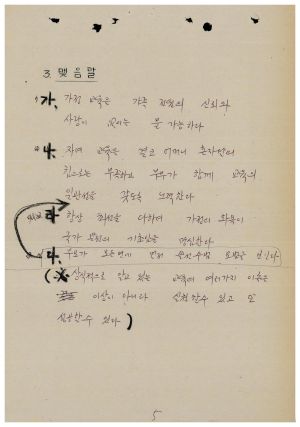 3. 맺음말
가. 가정 교육은 가족 전원의 신뢰와
사랑이 없이는 불가능하다
나. 자녀 교육은 결코 어머니 혼자만의
힘으로는 부족하고 부부가 함께 교육의
일관성을 갖도록 노력한다
라 항상 최선을 다하여 가정의 화목이
국가 발전의 기초임을 명심한다
다. 부모가 모든면에 먼저 솔선수범 모범을 보인다
( 상식적으로 알고 있는 교육에 여러가지 이론은
이상이 아니라 실천할수 있고 또
실행할수 있다 )
5